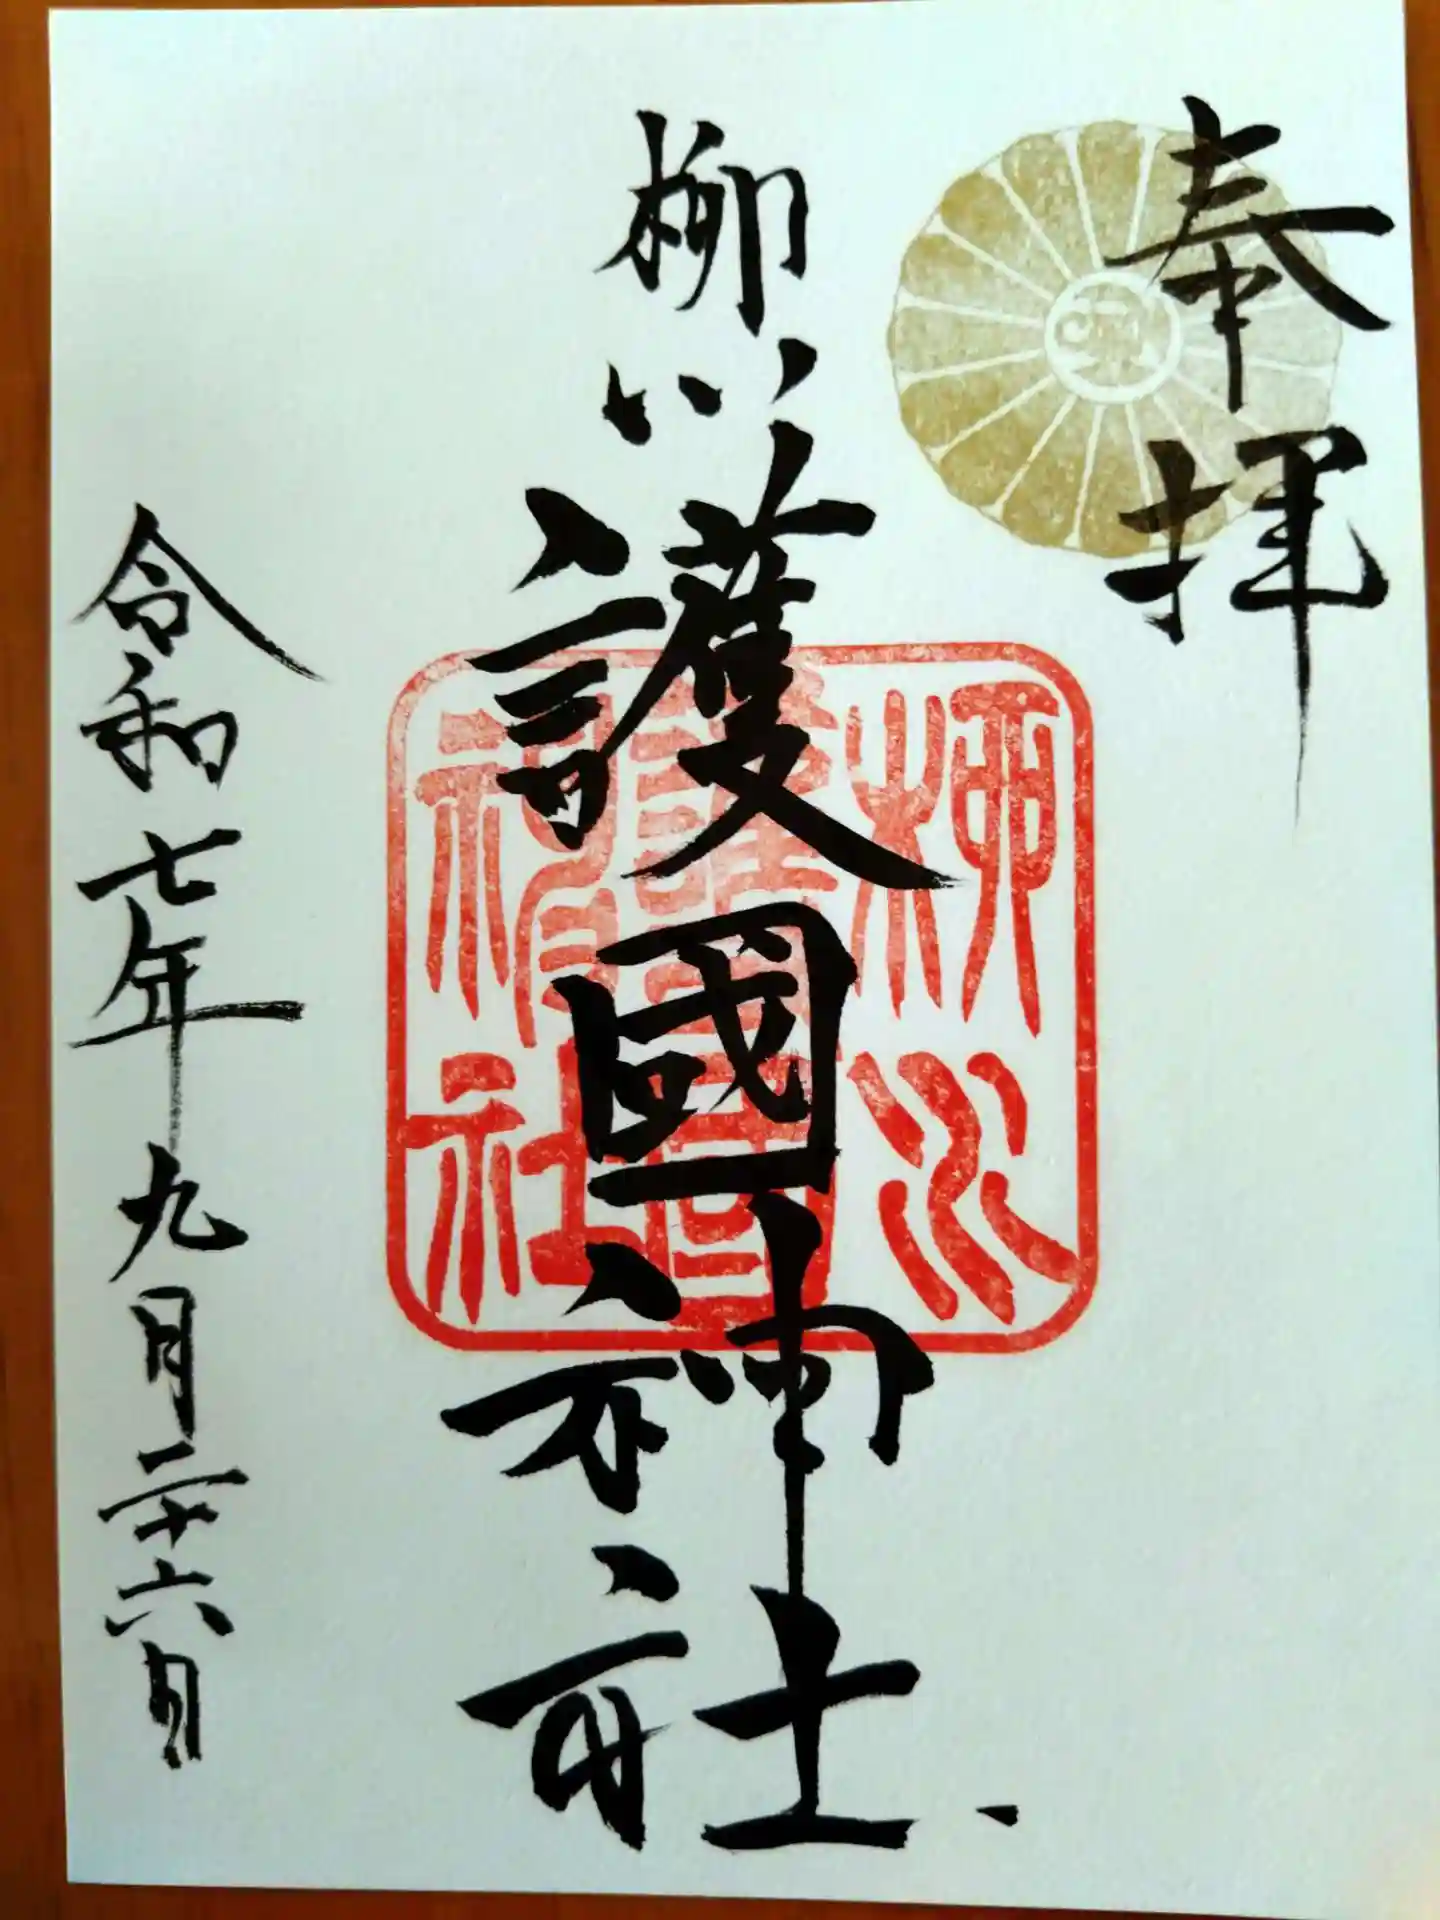 奉拝
柳川護國神社
柳川
護国
神社
令和七年九月二十六日